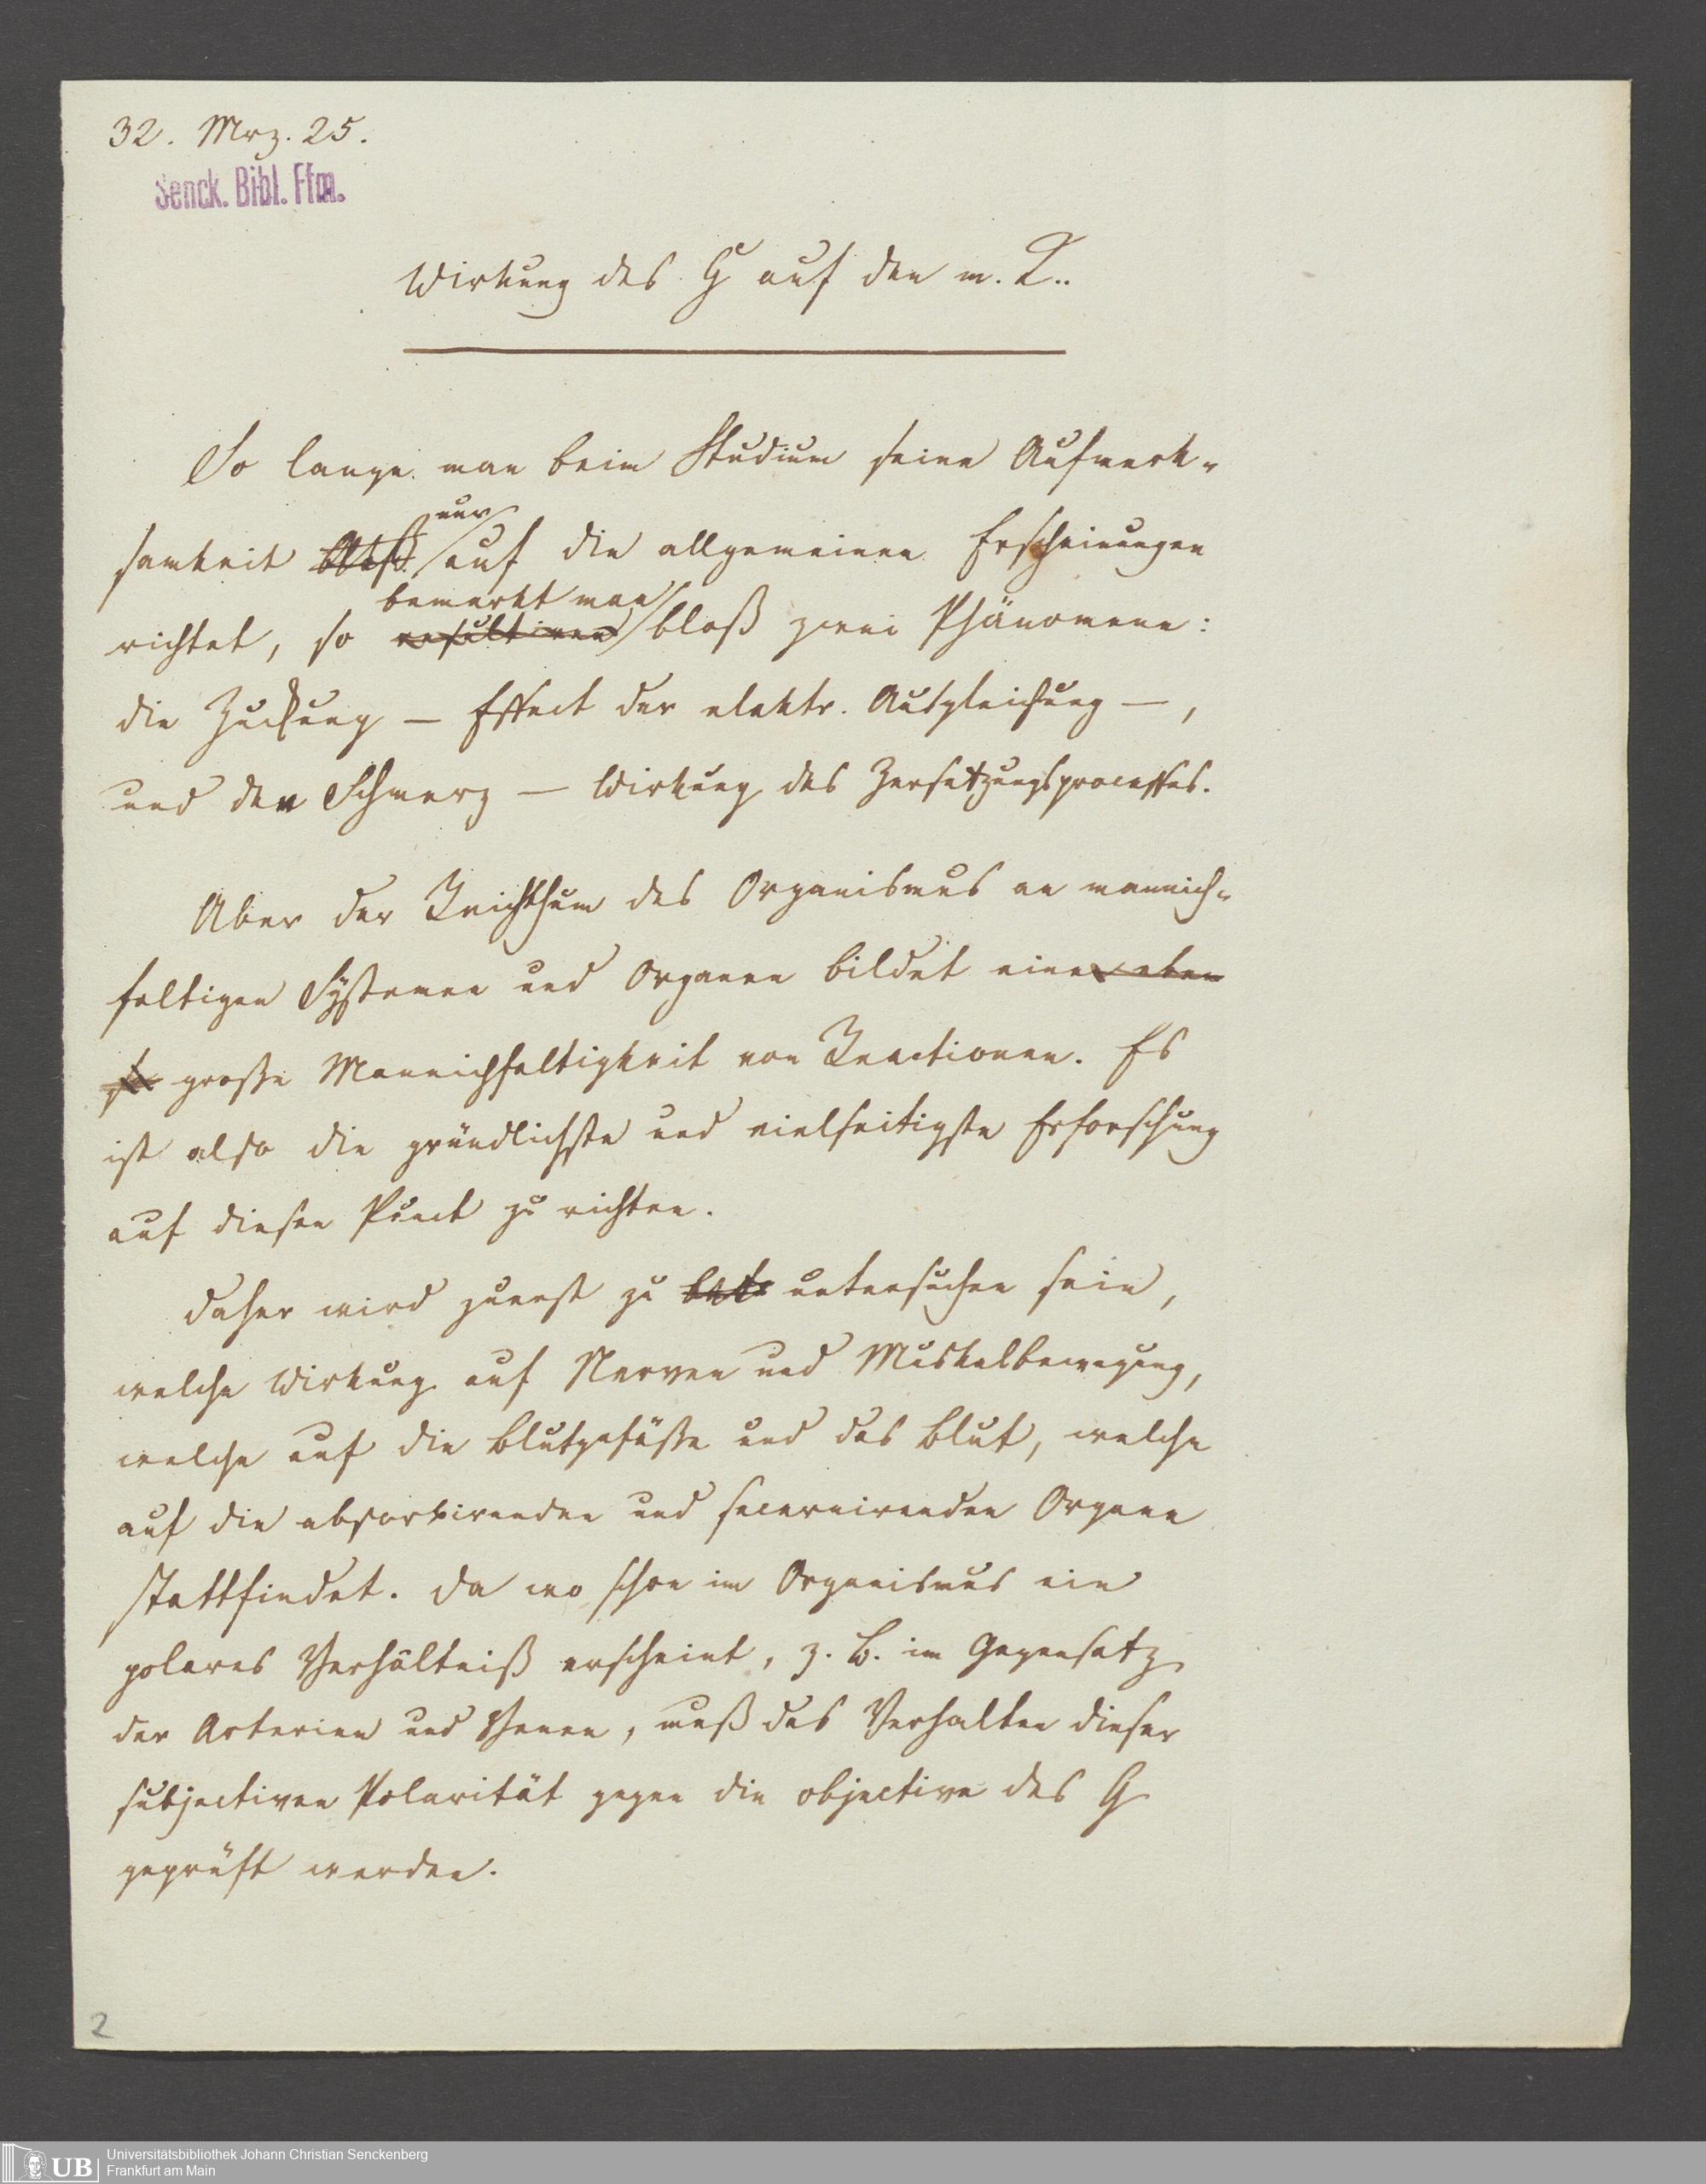 32. Mrz. 25.
Senck. Bibl. Ffm.
Wirkung des G auf den m. K..
So lange man beim Studium seine Aufmerk-
samkeit bloß nur auf die allgemeinen Erscheinungen
richtet, so resultiren bemerkt man bloß zwei Phänomene:
die Zuckung — Effect der elektr. Ausgleichung —,
und den Schmerz — Wirkung des Zersetzungsprocesses.
Aber der Reichthum des Organismus an mannich-
faltigen Systemen und Organen bildet eine eben
so große Mannichfaltigkeit von Reactionen. Es
ist also die gründlichste und vielseitigste Erforschung
auf diesen Punct zu richten.
Daher wird zuerst zu untersuchen sein,
welche Wirkung auf Nerven und Muskelbewegung,
welche auf die Blutgefäße und das Blut, welche
auf die absorbirenden und secernirenden Organe
stattfindet. Da wo schon im Organismus ein
polares Verhältniß erscheint, z. B. im Gegensatz
der Arterien und Venen, muß das Verhalten dieser
subjectiven Polarität gegen die objective des G
geprüft werden.
2
UB Universitätsbibliothek Johann Christian Senckenberg
Frankfurt am Main